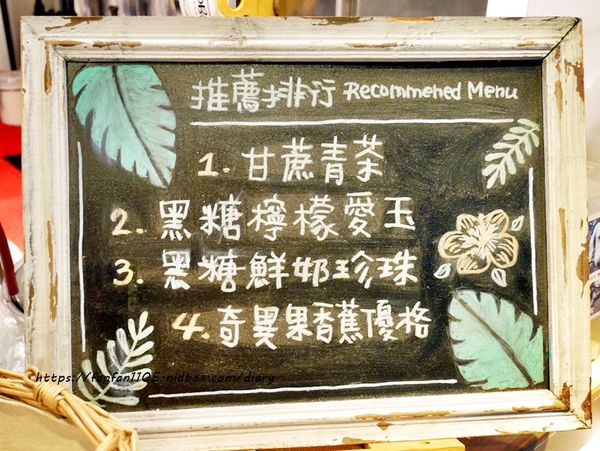 推薦排行 Recommened Menu
1. 甘蔗青茶
2. 黑糖檸檬愛玉
3. 黑糖鮮奶珍珠
4. 奇異果香蕉優格
https://fanfan1105.nidbox.com/diary